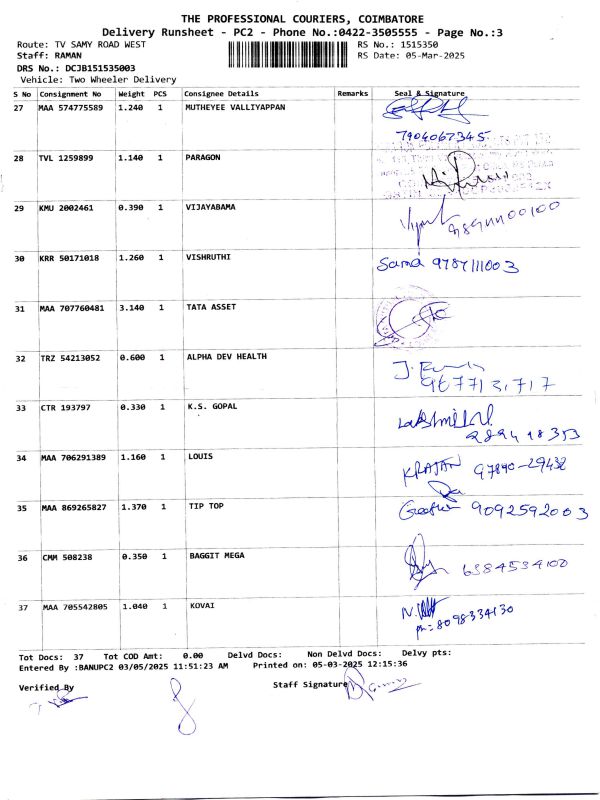 THE PROFESSIONAL COURIERS, COIMBATORE
Delivery Runsheet - PC2 - Phone No.:0422-3505555 - Page No.:3
Route: TV SAMY ROAD WEST RS No.: 1515350
Staff: RAMAN RS Date: 05-Mar-2025
DRS No.: DCJB151535003
Vehicle: Two Wheeler Delivery
S No Consignment No Weight PCS Consignee Details Remarks Seal & Signature
27 MAA 574775589 1.240 1 MUTHEYEE VALLIYAPPAN
7904067345
28 TVL 1259899 1.140 1 PARAGON
29 KMU 2002461 0.390 1 VIJAYABAMA
30 KRR 50171018 1.260 1 VISHRUTHI
9787111003
31 MAA 707760481 3.140 1 TATA ASSET
32 TRZ 54213052 0.600 1 ALPHA DEV HEALTH
33 CTR 193797 0.330 1 K.S. GOPAL
34 MAA 706291389 1.160 1 LOUIS
KRAJAN 97890-29432
35 MAA 869265827 1.370 1 TIP TOP
9092592003
36 CMM 508238 0.350 1 BAGGIT MEGA
6384534100
37 MAA 705542805 1.040 1 KOVAI
ph:8098334130
Tot Docs: 37 Tot COD Amt: 0.00 Delvd Docs: Non Delvd Docs: Delvy pts:
Entered By :BANUPC2 03/05/2025 11:51:23 AM Printed on: 05-03-2025 12:15:36
Verified By Staff Signature